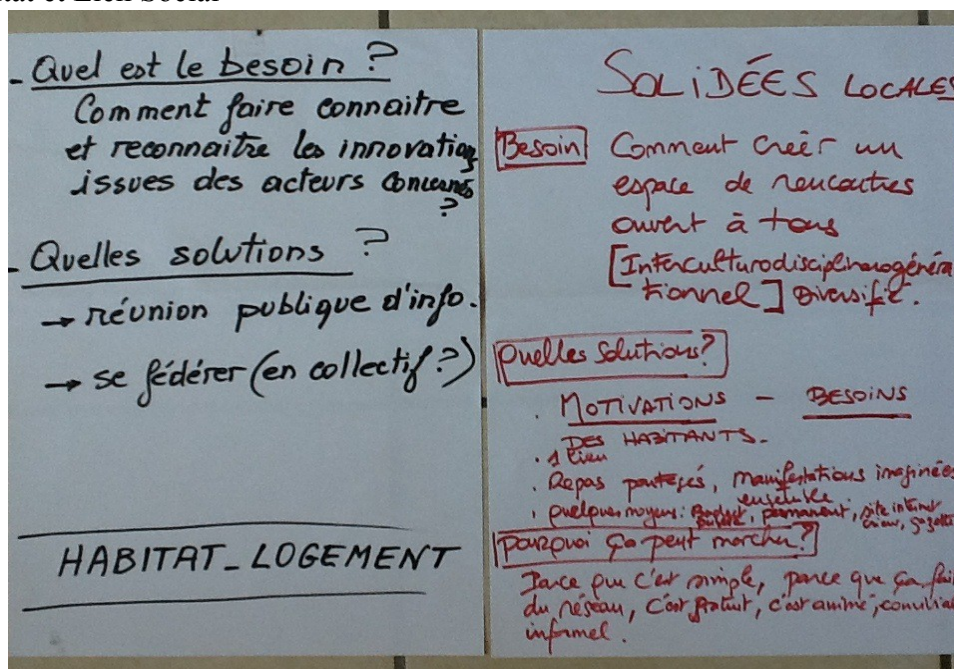 tat et Lien Social
- Quel est le besoin ?
Comment faire connaitre
et reconnaitre les innovations
issues des acteurs concernés
?
- Quelles solutions ?
→ réunion publique d'info.
→ se fédérer (en collectif ?)
HABITAT_LOGEMENT
SOLiDÉES LOCALES
Besoin Comment créer un
espace de rencontres
ouvert à tous
[Interculturodisciplinarogénéra
tionnel] Diversifié.
Quelles Solutions?
. MOTIVATIONS - BESOINS
DES HABITANTS.
. 1 lieu
. Repas partagés, manifestations imaginées
ensemble
. quelques moyens: Budget, permanent, site internet
Pourquoi ça peut marcher?
Parce que c'est simple, parce que ça fait
du réseau, c'est gratuit, c'est animé, convivial
informel.